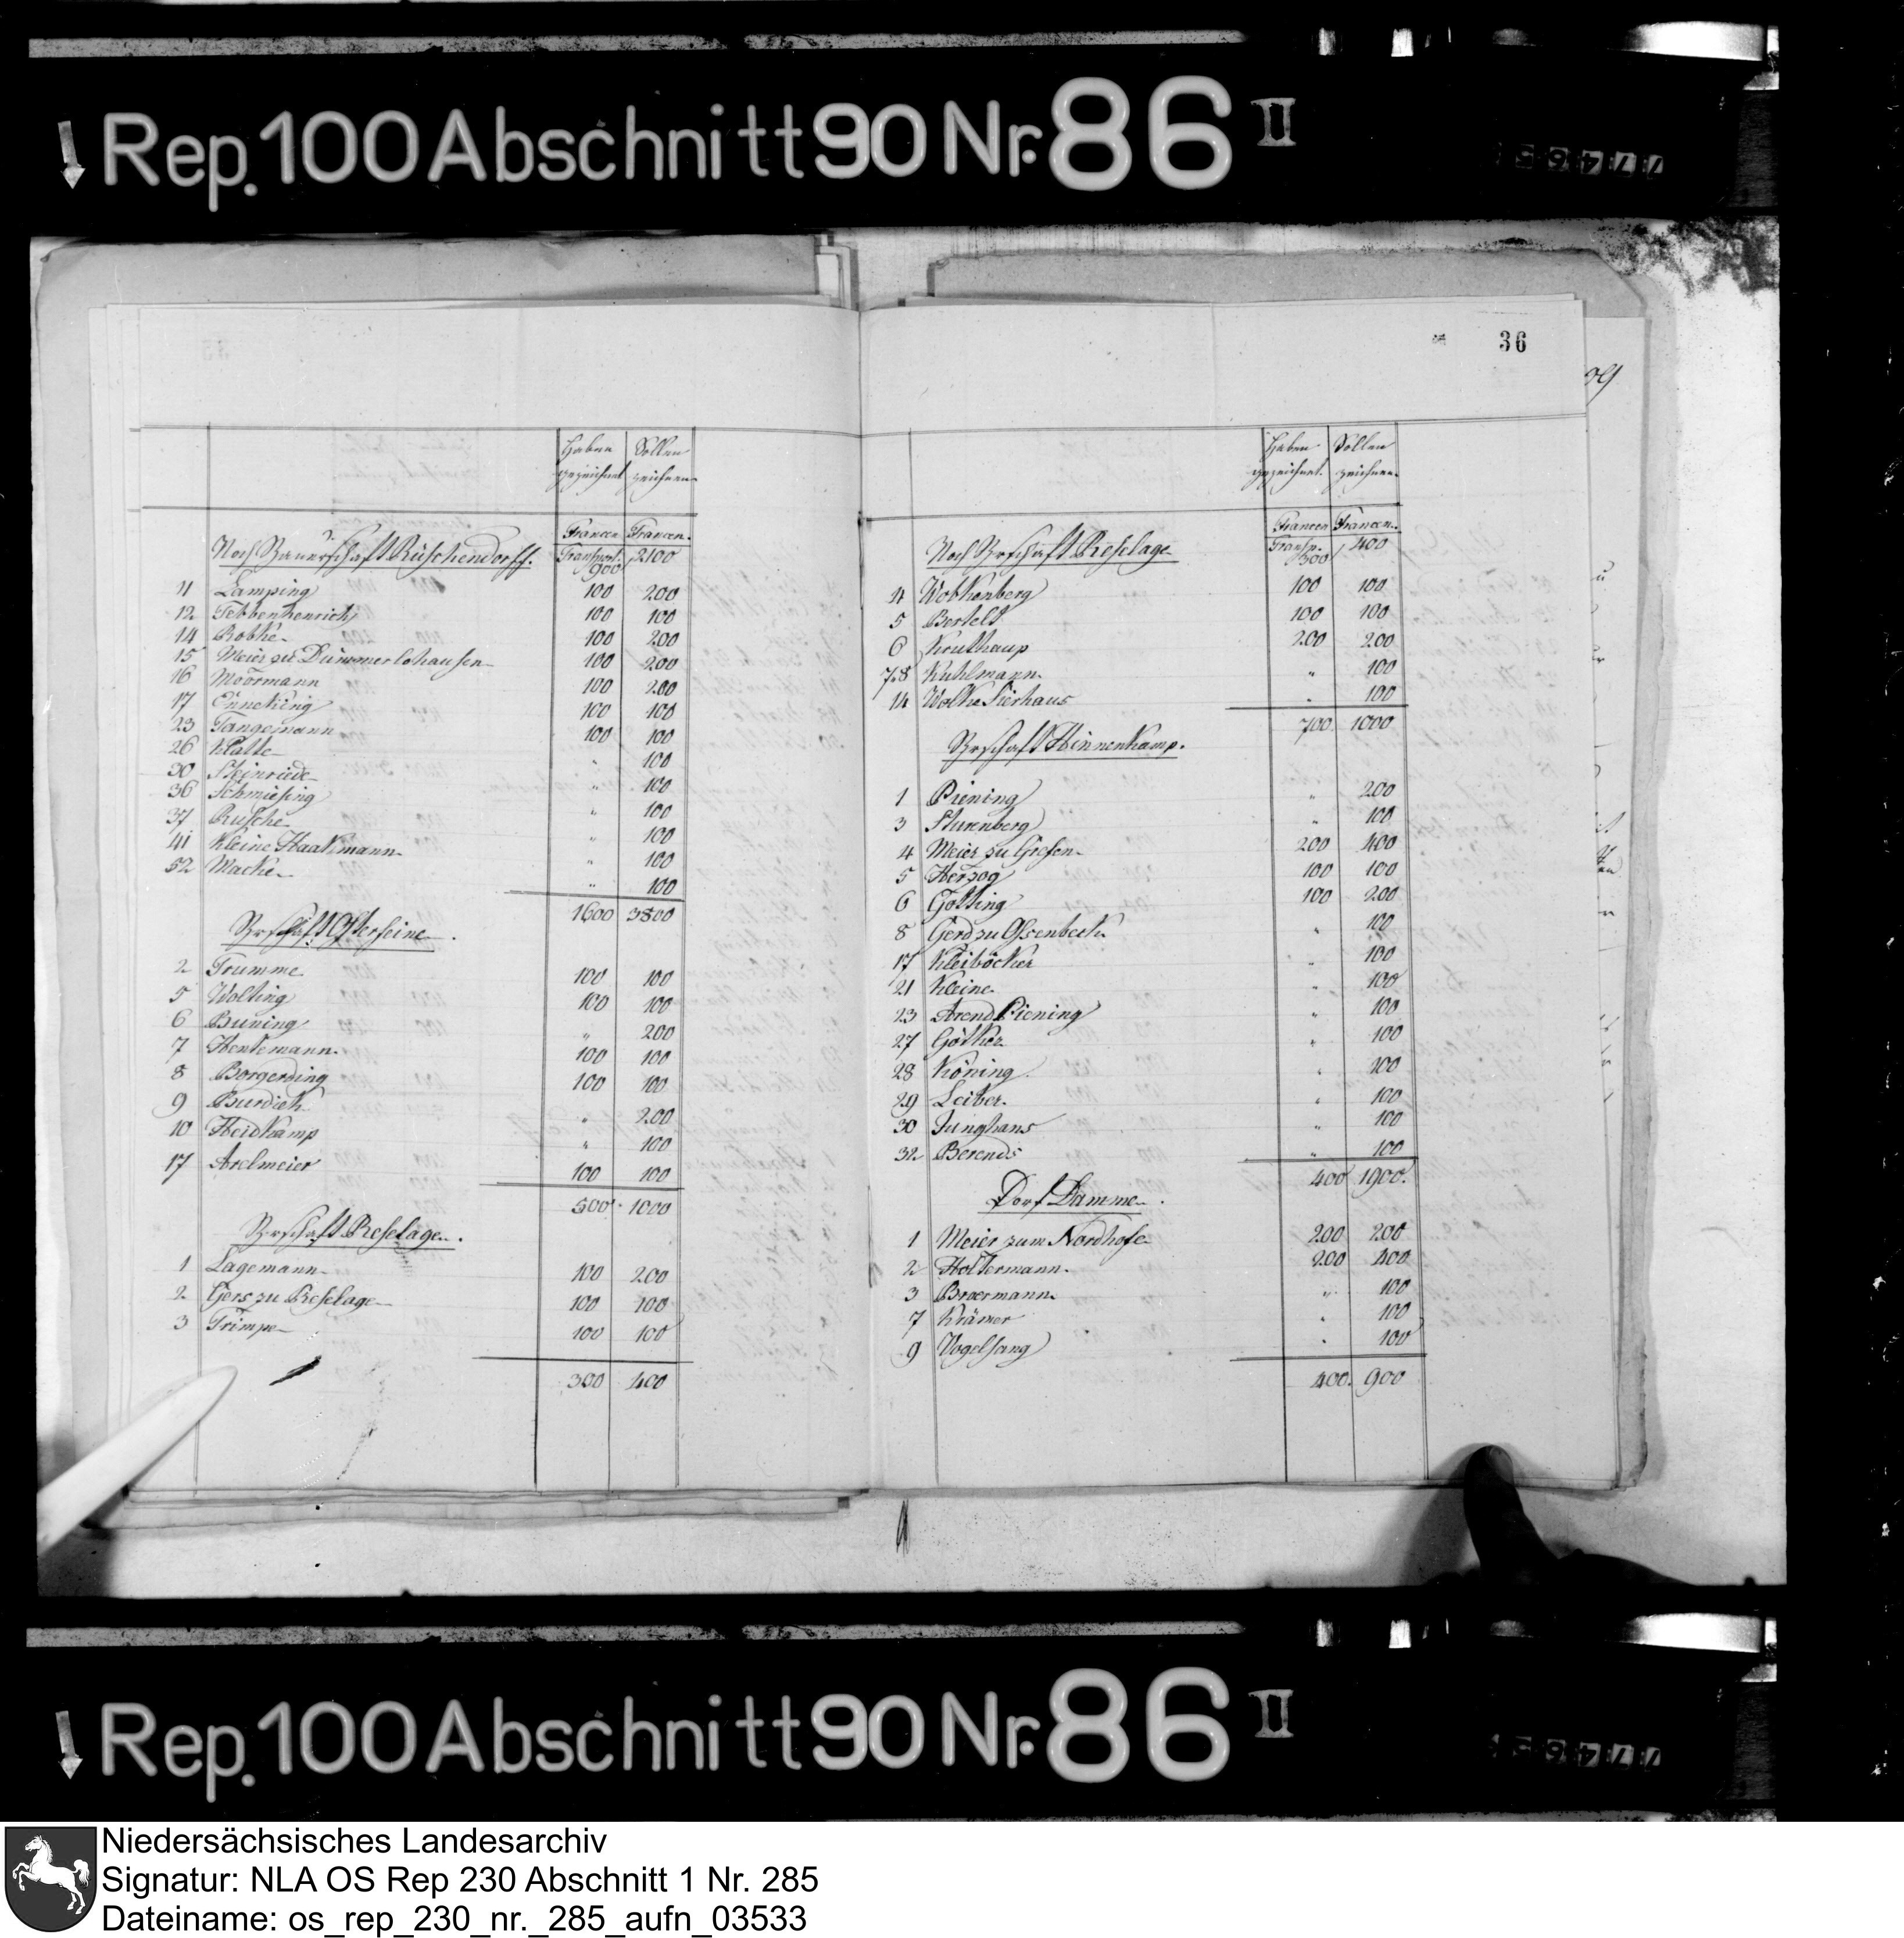 Rep. 100 Abschnitt 90 Nr. 86 II
77465
36
Haben gezeichnet Sollen zeichnen
Francen Francen.
Noch Bauerschaft Rüschendorff. Transport. 900 2100
11 Lamping 100 200
12 Tebbenhenrich 100 100
14 Robke 100 200
15 Meier zu Dümmerlohausen 100 200
16 Moormann 100 200
17 Enneking 100 100
23 Tangemann 100 100
26 Klatte " 100
30 Steinriede " 100
36 Schmiesing " 100
37 Rusche " 100
41 Kleine Haakmann " 100
52 Macke " 100
1600 3800
Brschaft Osterfeine.
2 Trumme 100 100
5 Wolting 100 100
6 Buning " 200
7 Hentemann 100 100
8 Borgerding 100 100
9 Burdiek " 200
10 Heidkamp " 100
17 Arelmeier 100 100
500 1000
Brschaft Reselage.
1 Lagemann 100 200
2 Gers zu Reselage 100 100
3 Trimpe 100 100
300 400
Haben gezeichnet. Sollen zeichnen.
Francen Francen.
Noch Brschaft Reselage Transp. 300 400
4 Wobkenberg 100 100
5 Bertelt 100 100
6 Kruthaup 200 200
7.8 Kuhlmann. " 100
14 Wolke Sierhaus " 100
700 1000
Brschaft Hinnenkamp.
1 Piening " 200
3 Sturenberg " 100
4 Meier zu Grefen 200 400
5 Herzog 100 100
6 Gotting 100 200
8 Gerd zu Ossenbeck " 100
17 Kleiböcker " 100
21 Kleine " 100
23 Arend Piening " 100
27 Götker " 100
28 Köning " 100
29 Leiber. " 100
30 Junghans " 100
32 Berends " 100
400 1900.
Dorf Damme.
1 Meier zum Nordhofe 200 200
2 Holtermann. 200 400
3 Broermann " 100
7 Krämer " 100
9 Vogelsang " 100
400. 900
Rep. 100 Abschnitt 90 Nr. 86 II
77465
Niedersächsisches Landesarchiv
Signatur: NLA OS Rep 230 Abschnitt 1 Nr. 285
Dateiname: os_rep_230_nr._285_aufn_03533